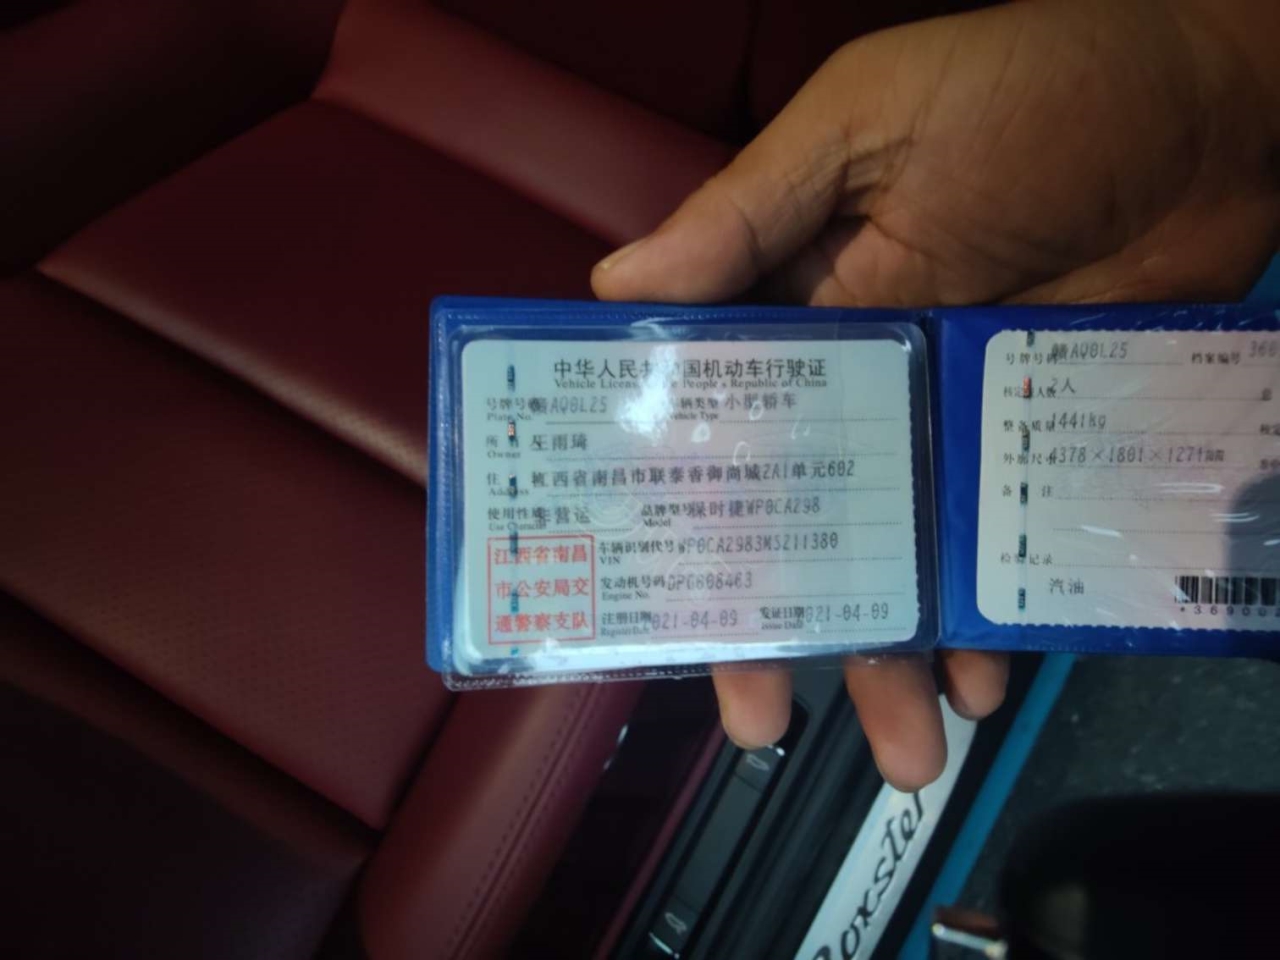 中华人民共和国机动车行驶证
Vehicle License of the People's Republic of China
号牌号码 赣AQ0L25 车辆类型 小型轿车
Plate No. Vehicle Type
所有人 雨琦
Owner
住址 江西省南昌市联泰香御尚城2A1单元602
Address
使用性质 非营运 品牌型号 保时捷WP0CA298
Use Character Model
江西省南昌
市公安局交
通警察支队
车辆识别代号 WP0CA2983MS211380
VIN
发动机号码 008463
Engine No.
注册日期 2021-04-09 发证日期 2021-04-09
Register Date Issue Date
号牌号码 赣AQ0L25 档案编号 366
核定载人数 2人 总
整备质量 1441kg 核定
外廓尺寸 4378×1801×1271mm
备注
检验记录
汽油
*36900
Boxster